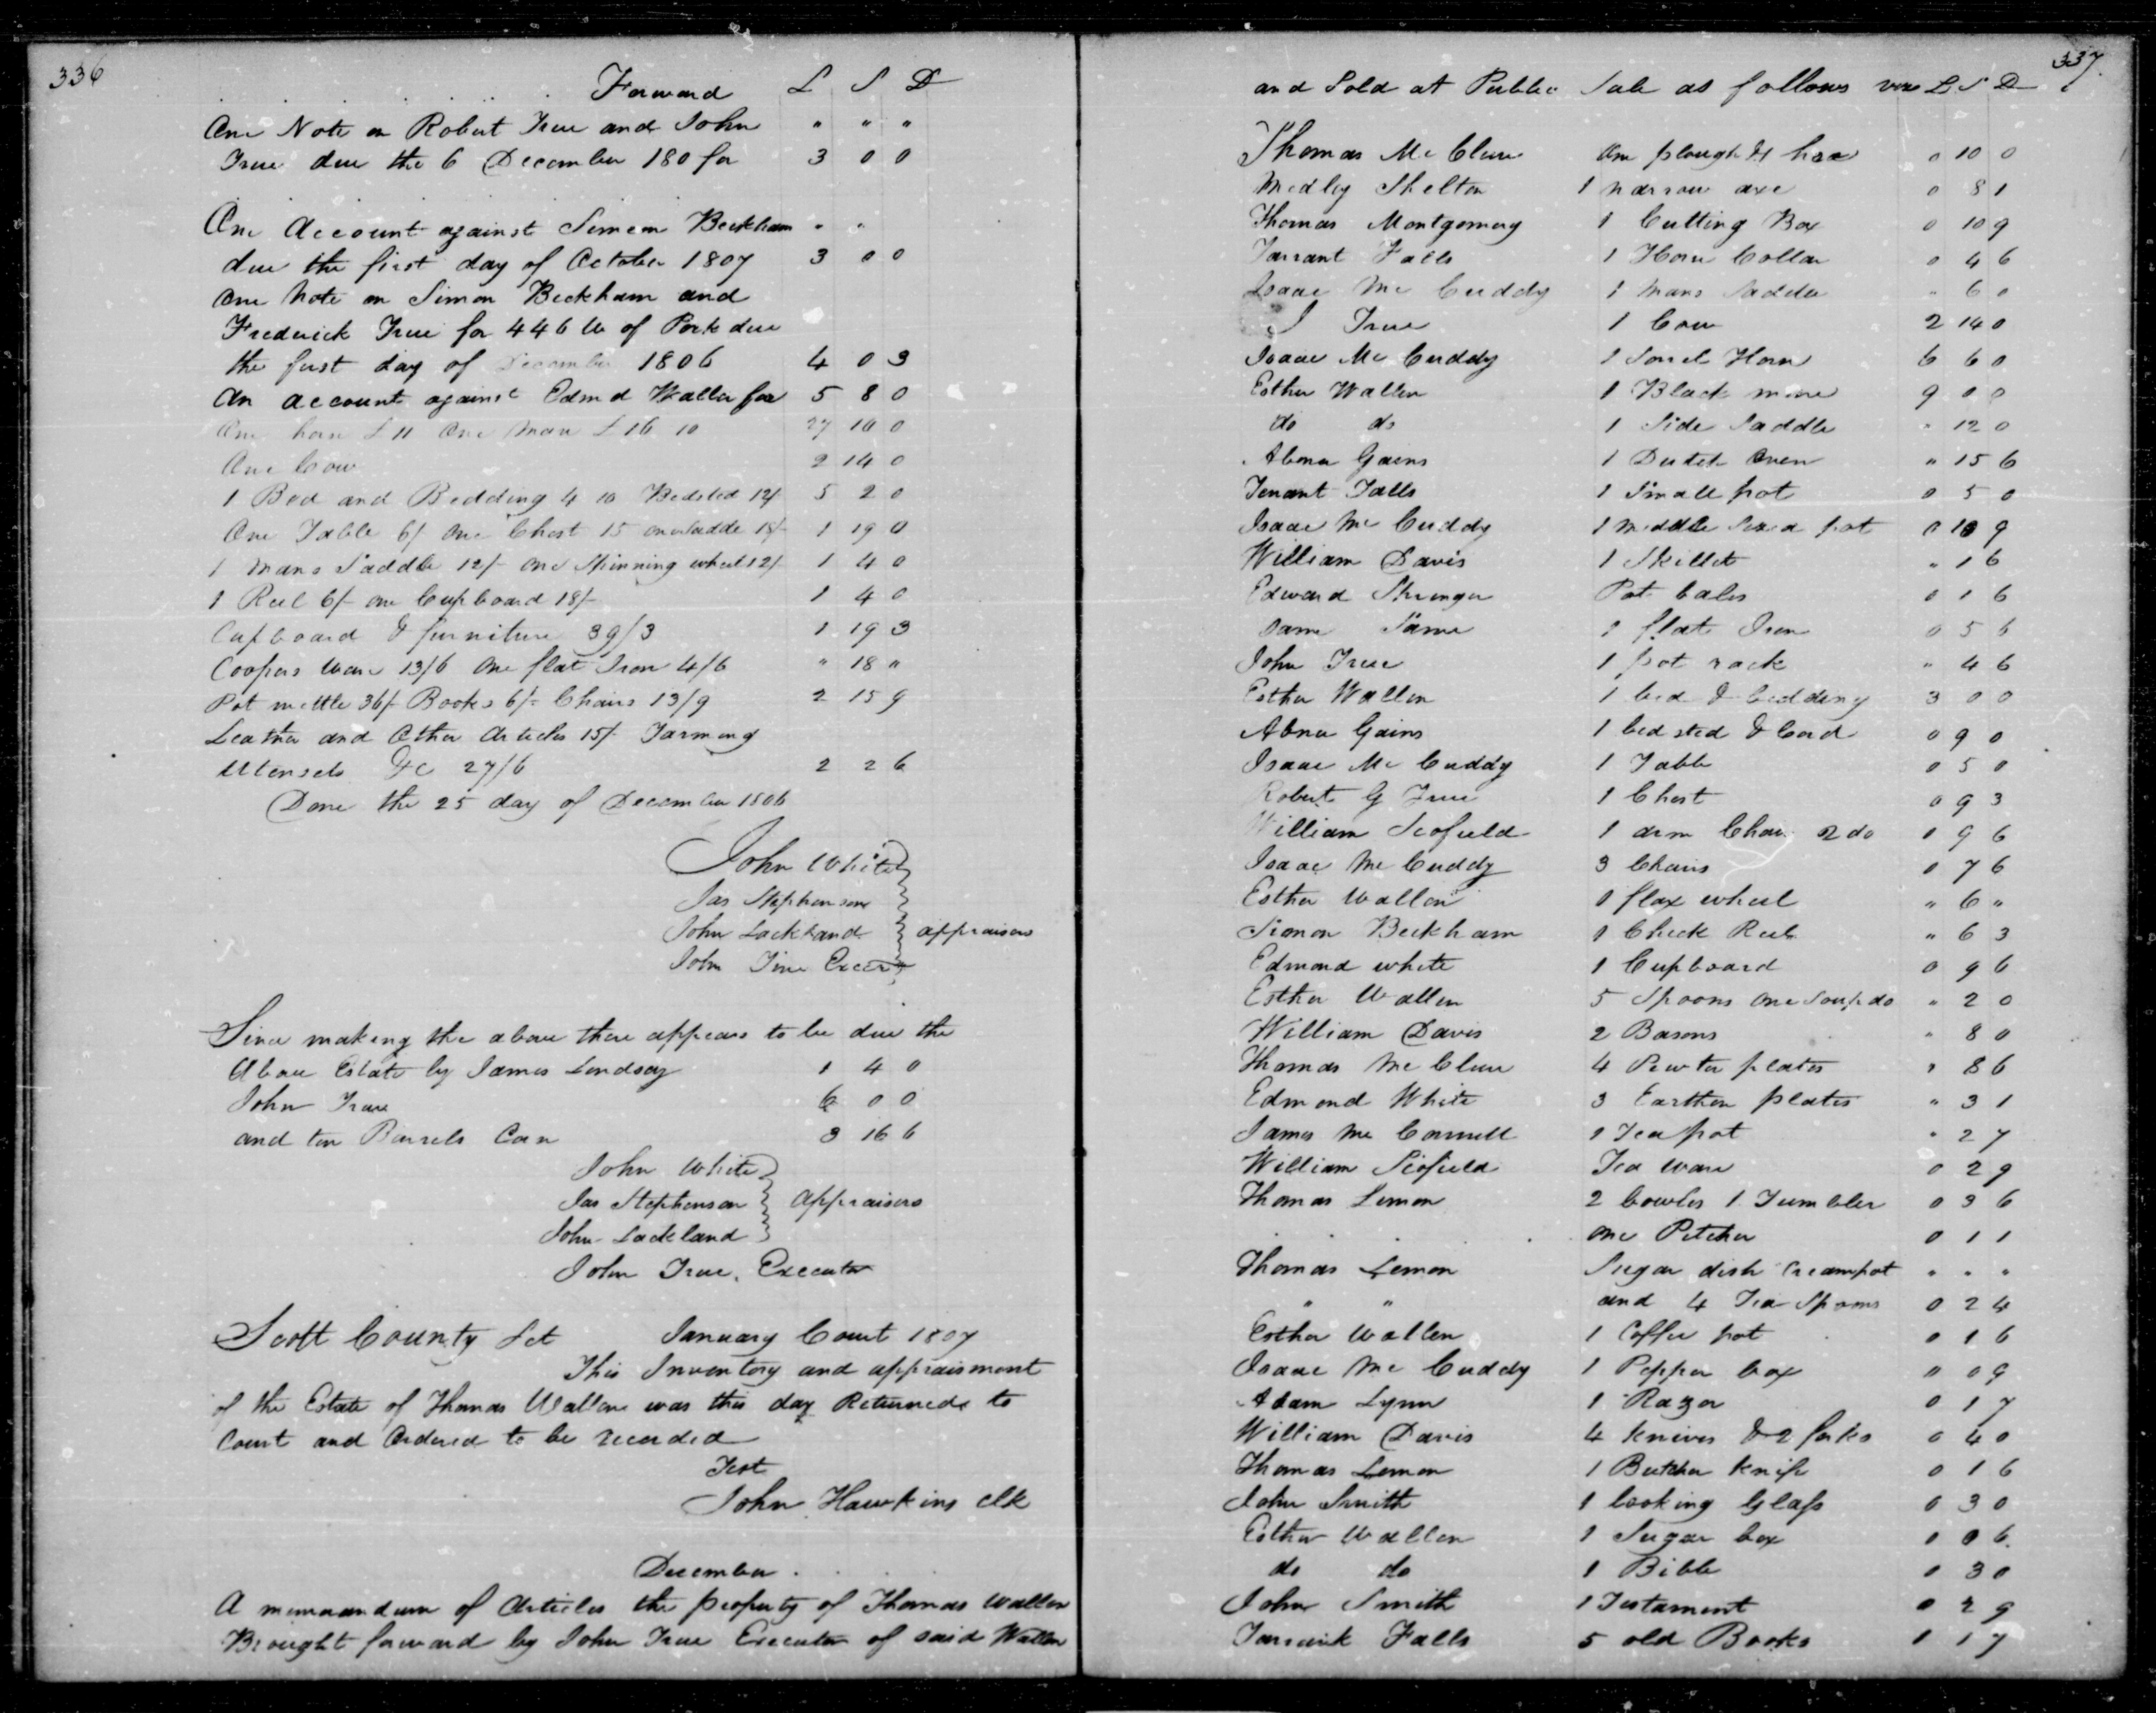 336
Forward L S D
One Note on Robert True and John " " "
True due the 6 December 180 for 3 0 0
One Account against Simeon Beckham " "
due the first day of October 1807 3 0 0
One Note on Simon Beckham and
Frederick True for 446 lb of Pork due
the first day of December 1806 4 0 3
An account against Edmd Waller for 5 8 0
One horse £11 One Mare £16 10 27 10 0
One Cow 2 14 0
1 Bed and Bedding 4 10 Bedsted 12/ 5 2 0
One Table 6/ One Chest 15 one saddle 18/- 1 19 0
1 Mans Saddle 12/- One Spinning wheel 12/ 1 4 0
1 Reel 6/- one Cupboard 18/- 1 4 0
Cupboard & furniture 39/3 1 19 3
Coopers Ware 13/6 One flat Iron 4/6 " 18 "
Pot mettle 36/- Books 6/- Chairs 13/9 2 15 9
Leather and Other Articles 15/- Farming
Utensels &c 27/6 2 2 6
Done the 25 day of December 1806
John White
Jas Stephenson
John Lackland appraisers
John True Excer
Since making the above there appears to be due the
Above Estate by James Lindsay 1 4 0
John True 6 0 0
and ten Barrels Corn 3 16 6
John White
Jas Stephenson appraisers
John Lackland
John True, Executor
Scott County Sct January Court 1807
This Inventory and appraisment
of the Estate of Thomas Wallen was this day Returned to
Court and Ordered to be recorded
Test
John Hawkins clk
December
A memorandum of Articles the property of Thomas Wallen
Brought forward by John True Executor of said Wallen
337
and Sold at Public Sale as follows L S D
Thomas Mc Clure One plough & 0 10 0
Medley Shelton 1 narrow axe 0 8 1
Thomas Montgomery 1 Cutting Box 0 10 9
Tarrant Falls 1 Horse Collar 0 4 6
Isaac Mc Cuddy 1 Mans Saddle " 6 0
J True 1 Cow 2 14 0
Isaac Mc Cuddy 1 Sorrel Horse 6 6 0
Esther Wallen 1 Black mare 9 0 0
do do 1 Side Saddle " 12 0
Abner Gains 1 Dutch Oven " 15 6
Tenant Falls 1 Small pot 0 5 0
Isaac Mc Cuddy 1 middle sized pot 0 10 9
William Davis 1 Skillet " 1 6
Edward Stringer Pot bales 0 1 6
Same Same 1 flat Iron 0 5 6
John True 1 pot rack " 4 6
Esther Wallen 1 bed & bedding 3 0 0
Abner Gains 1 bedsted & Cord 0 9 0
Isaac Mc Cuddy 1 Table 0 5 0
Robert G True 1 Chest 0 9 3
William Scofield 1 arm Chair 2 do 0 9 6
Isaac Mc Cuddy 3 Chairs 0 7 6
Esther Wallen 1 flax wheel " 6 "
Simon Beckham 1 Check Reel " 6 3
Edmond white 1 Cupboard 0 9 6
Esther Wallen 5 Spoons One Soup do " 2 0
William Davis 2 Basons " 8 0
Thomas Mc Clure 4 Pewter plates " 8 6
Edmond White 3 Earthen plates " 3 1
James Mc Connell 1 Tea pot " 2 7
William Scofield Tea ware 0 2 9
Thomas Lemon 2 bowles 1 Tumbler 0 3 6
One Pitcher 0 1 1
Thomas Lemon Sugar dish Creampot " " "
" " and 4 Tea Spoons 0 2 4
Esther Wallen 1 Coffee pot 0 1 6
Isaac Mc Cuddy 1 Pepper box " 0 9
Adam Lynn 1 Razor 0 1 7
William Davis 4 knives & 2 forks 0 4 0
Thomas Lemon 1 Butcher knife 0 1 6
John Smith 1 looking Glass 0 3 0
Esther Wallen 1 Sugar box 0 0 6
do do 1 Bible 0 3 0
John Smith 1 Testament 0 2 9
Tarrant Falls 5 old Books 0 1 7